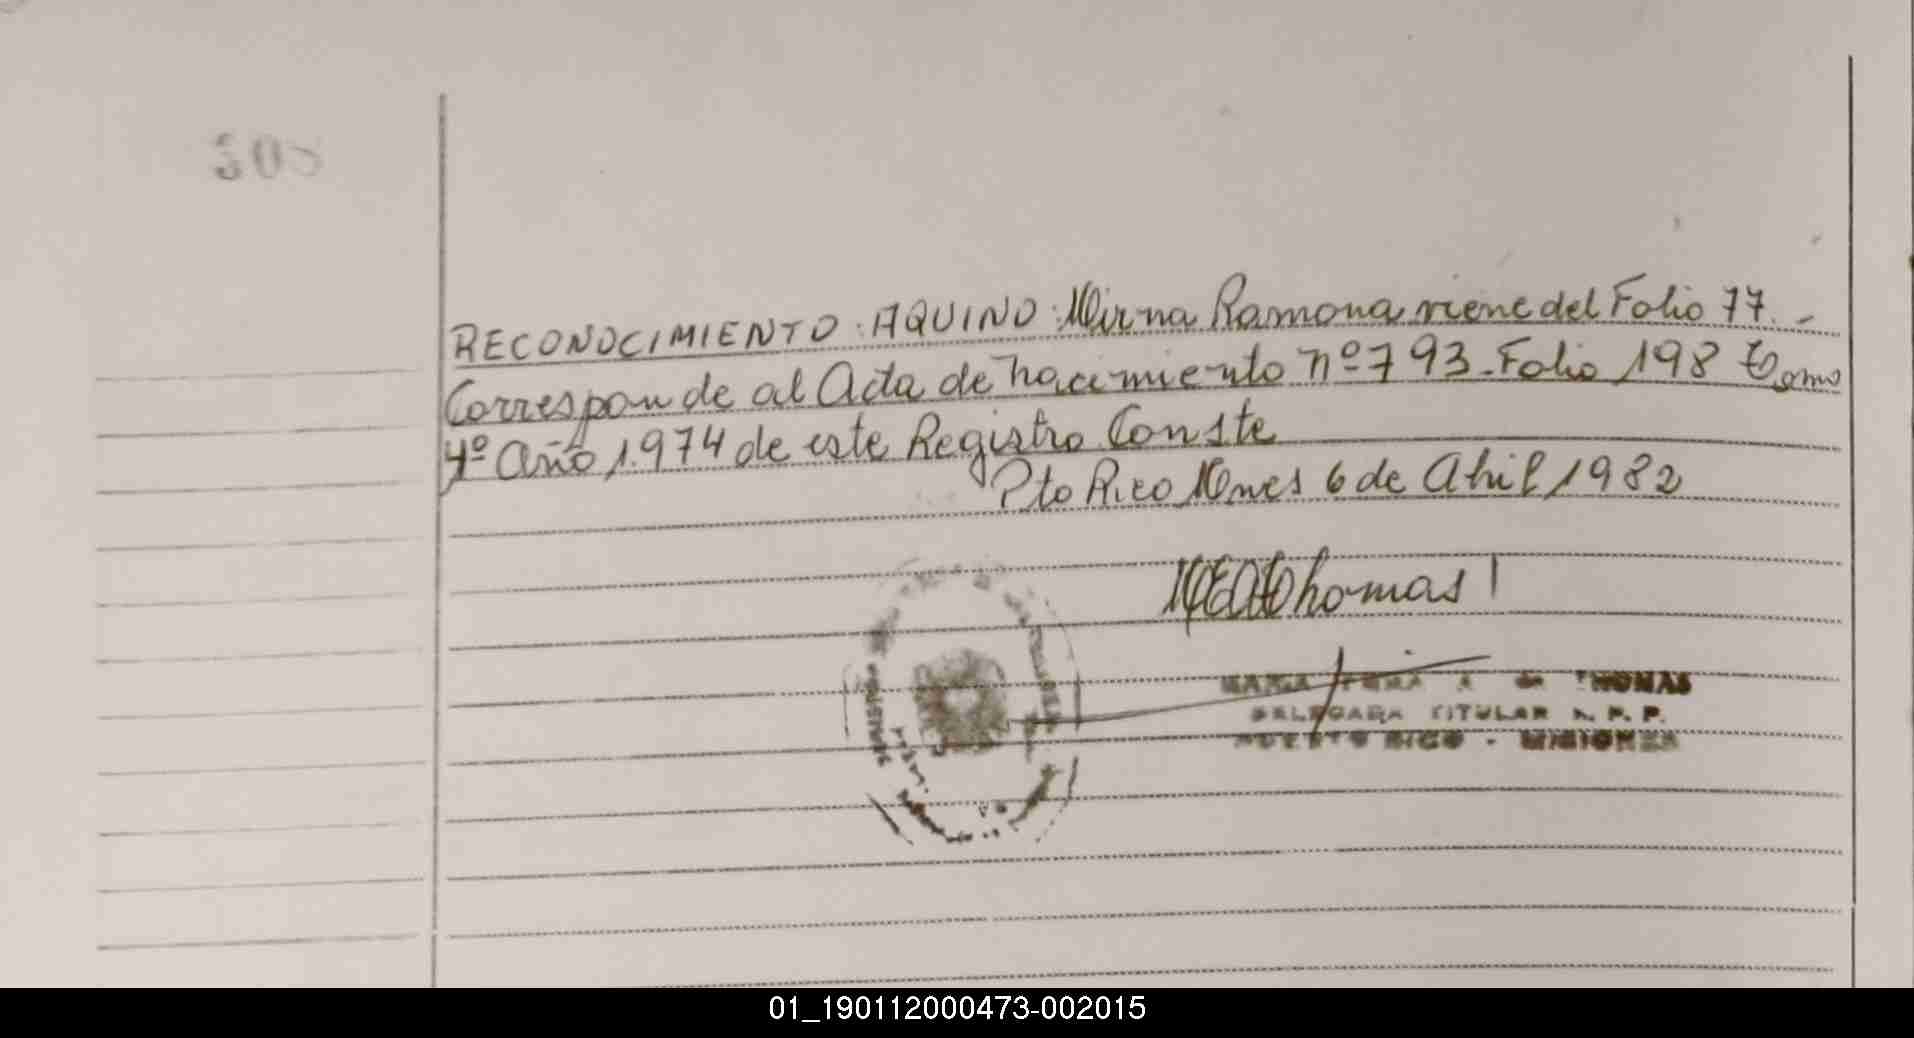 RECONOCIMIENTO: AQUINO: Mirna Ramona viene del Folio 77.-
Corresponde al Acta de nacimiento nº 793. Folio 198 tomo
4º Año 1.974 de este Registro Conste
Pto Rico Mnes 6 de Abril 1982
Thomas
MARIA A de THOMAS
DELEGADA TITULAR R. P. P.
PUERTO RICO - MISIONES
01_190112000473-002015